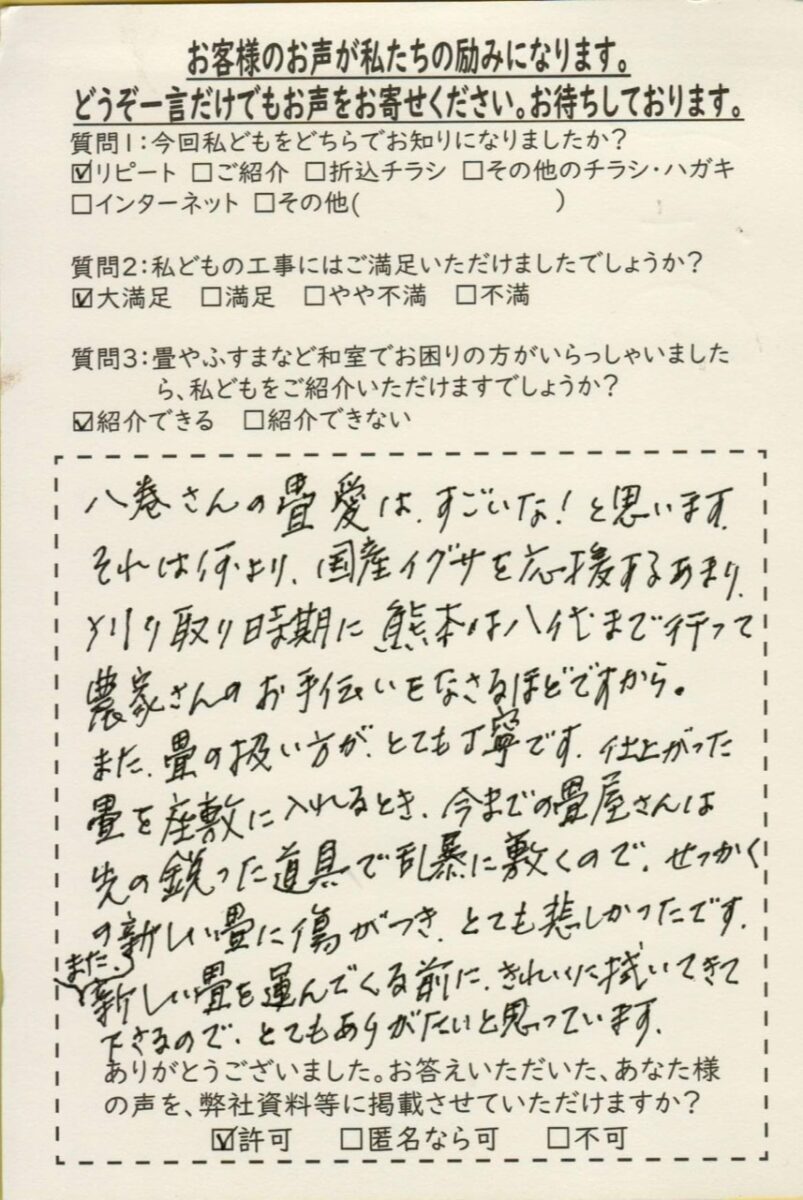 お客様のお声が私たちの励みになります。
どうぞ一言だけでもお声をお寄せください。お待ちしております。
質問1:今回私どもをどちらでお知りになりましたか?
☑リピート □ご紹介 □折込チラシ □その他のチラシ・ハガキ
□インターネット □その他( )
質問2:私どもの工事にはご満足いただけましたでしょうか?
☑大満足 □満足 □やや不満 □不満
質問3:畳やふすまなど和室でお困りの方がいらっしゃいました
ら、私どもをご紹介いただけますでしょうか?
☑紹介できる □紹介できない
八巻さんの畳愛は、すごいな!と思います。
それは何より、国産イグサを応援するあまり、
刈り取り時期に熊本は八代まで行って
農家さんのお手伝いをなさるほどですから。
また、畳の扱い方が、とても丁寧です。仕上がった
畳を座敷に入れるとき、今までの畳屋さんは
先の鋭った道具で乱暴に敷くので、せっかく
の新しい畳に傷がつき、とても悲しかったです。
また、
新しい畳を運んでくる前に、きれいに拭いてきて
下さるので、とてもありがたいと思っています。
ありがとうございました。お答えいただいた、あなた様
の声を、弊社資料等に掲載させていただけますか?
☑許可 □匿名なら可 □不可